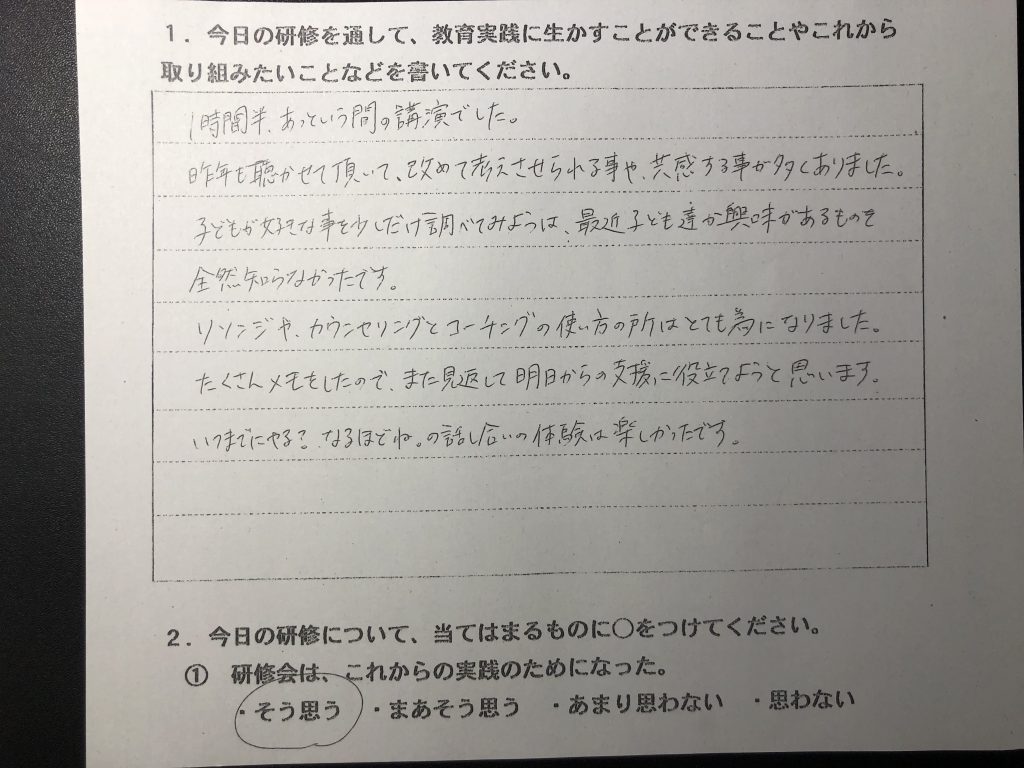 1．今日の研修を通して、教育実践に生かすことができることやこれから
取り組みたいことなどを書いてください。
1時間半、あっという間の講演でした。
昨年も聴かせて頂いて、改めて考えさせられる事や、共感する事が多くありました。
子どもが好きな事を少しだけ調べてみようは、最近子ども達が興味があるものを
全然知らなかったです。
リソンジや、カウンセリングとコーチングの使い方の所はとても為になりました。
たくさんメモをしたので、また見返して明日からの支援に役立てようと思います。
いつまでにやる？なるほどね。の話し合いの体験は楽しかったです。
2．今日の研修について、当てはまるものに○をつけてください。
① 研修会は、これからの実践のためになった。
・そう思う ・まあそう思う ・あまり思わない ・思わない